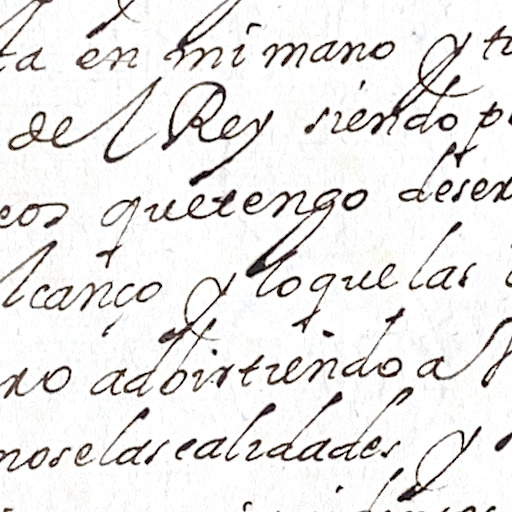 ta en mi mano y tu
del Rey siendo p
cos quetengo deser
lcanço y loque las
ro adbirtiendo a V
nos e las calidades y